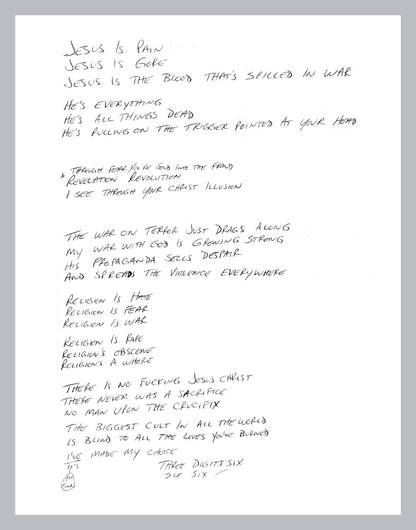 JESUS IS PAIN
JESUS IS GORE
JESUS IS THE BLOOD THAT'S SPILLED IN WAR
HE'S EVERYTHING
HE'S ALL THINGS DEAD
HE'S PULLING ON THE TRIGGER POINTED AT YOUR HEAD
* THROUGH FEAR YOU'RE SOLD INTO THE FRAUD
REVELATION REVOLUTION
I SEE THROUGH YOUR CHRIST ILLUSION
THE WAR ON TERROR JUST DRAGS ALONG
MY WAR WITH GOD IS GROWING STRONG
HIS PROPAGANDA SELLS DESPAIR
AND SPREADS THE VIOLENCE EVERYWHERE
RELIGION IS HATE
RELIGION IS FEAR
RELIGION IS WAR
RELIGION IS RAPE
RELIGION'S OBSCENE
RELIGION'S A WHORE
THERE IS NO FUCKING JESUS CHRIST
THERE NEVER WAS A SACRIFICE
NO MAN UPON THE CRUCIFIX
THE BIGGEST CULT IN ALL THE WORLD
IS BLIND TO ALL THE LIVES YOU'VE BURNED
I'VE MADE MY CHOICE
IT'S THREE DIGITS SIX
SIX SIX